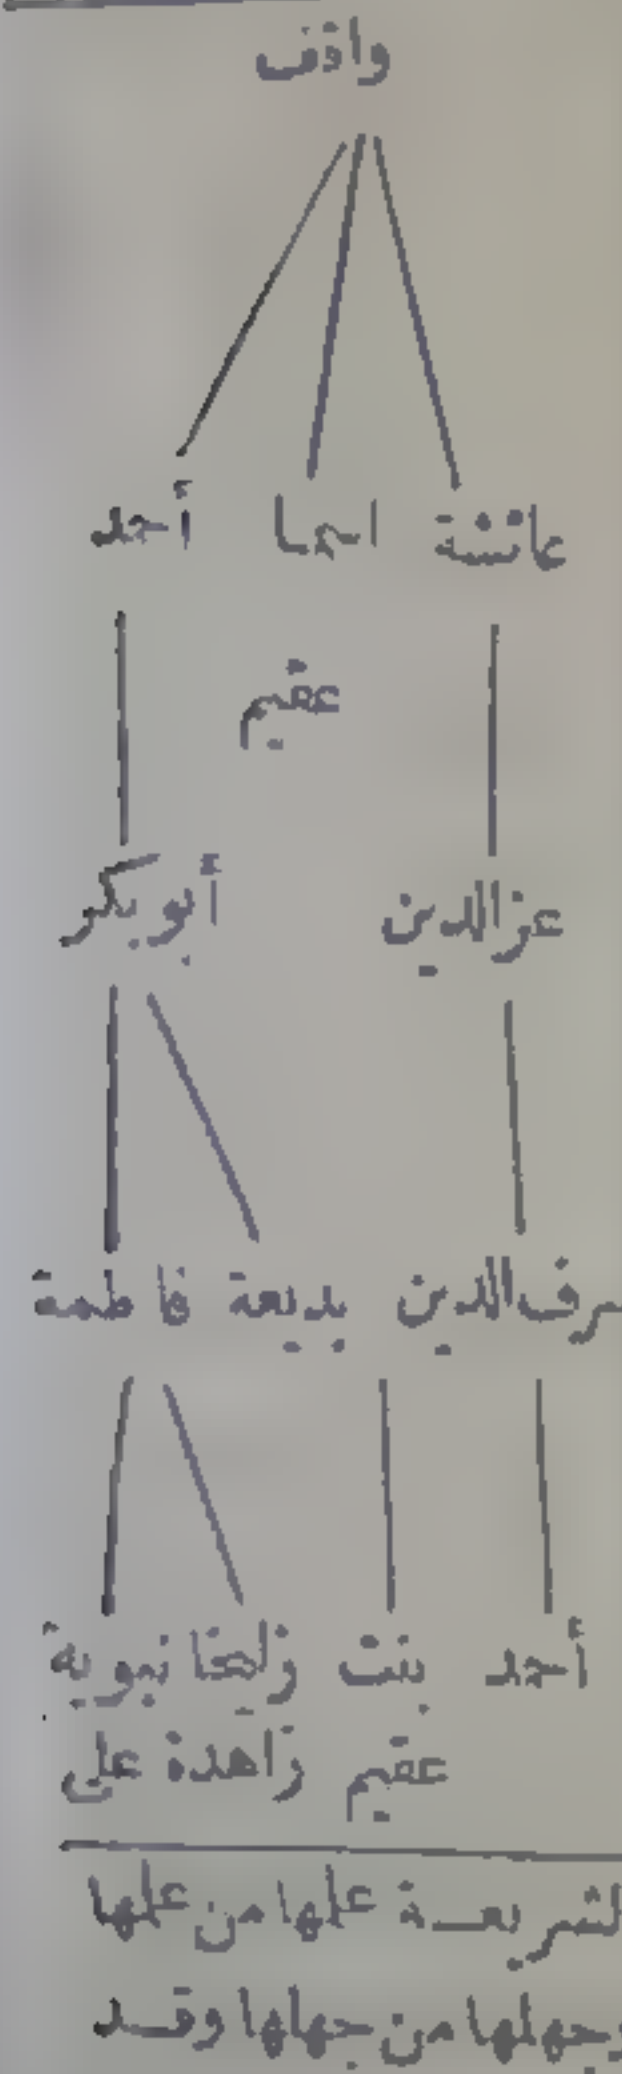 واقف
عائشة اسما أحمد
عقيم
عزالدين أبو بكر
شرف الدين بديعة فاطمة
أحمد بنت زليخا نبوية
عقيم زاهدة على
لشريعة علمها من علمها
وجهلها من جهلها وقد